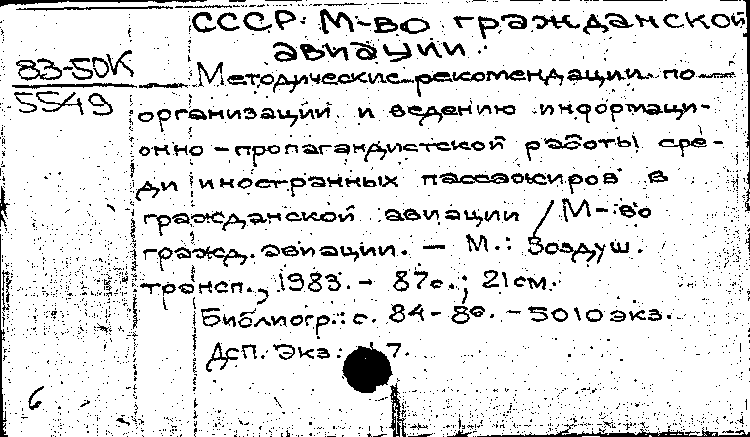 СССР. М-во гражданской
авиации.
83-50К
5549
Методические рекомендации по
организации и ведению информаци-
онно-пропагандистской работы сре-
ди иностранных пассажиров в
гражданской авиации / М-во
гражд. авиации. — М.: Воздуш.
трансп., 1983. - 87с.; 21см.
Библиогр.: с. 84-86. - 5010 экз.
Дсп. Экз. 7.
6